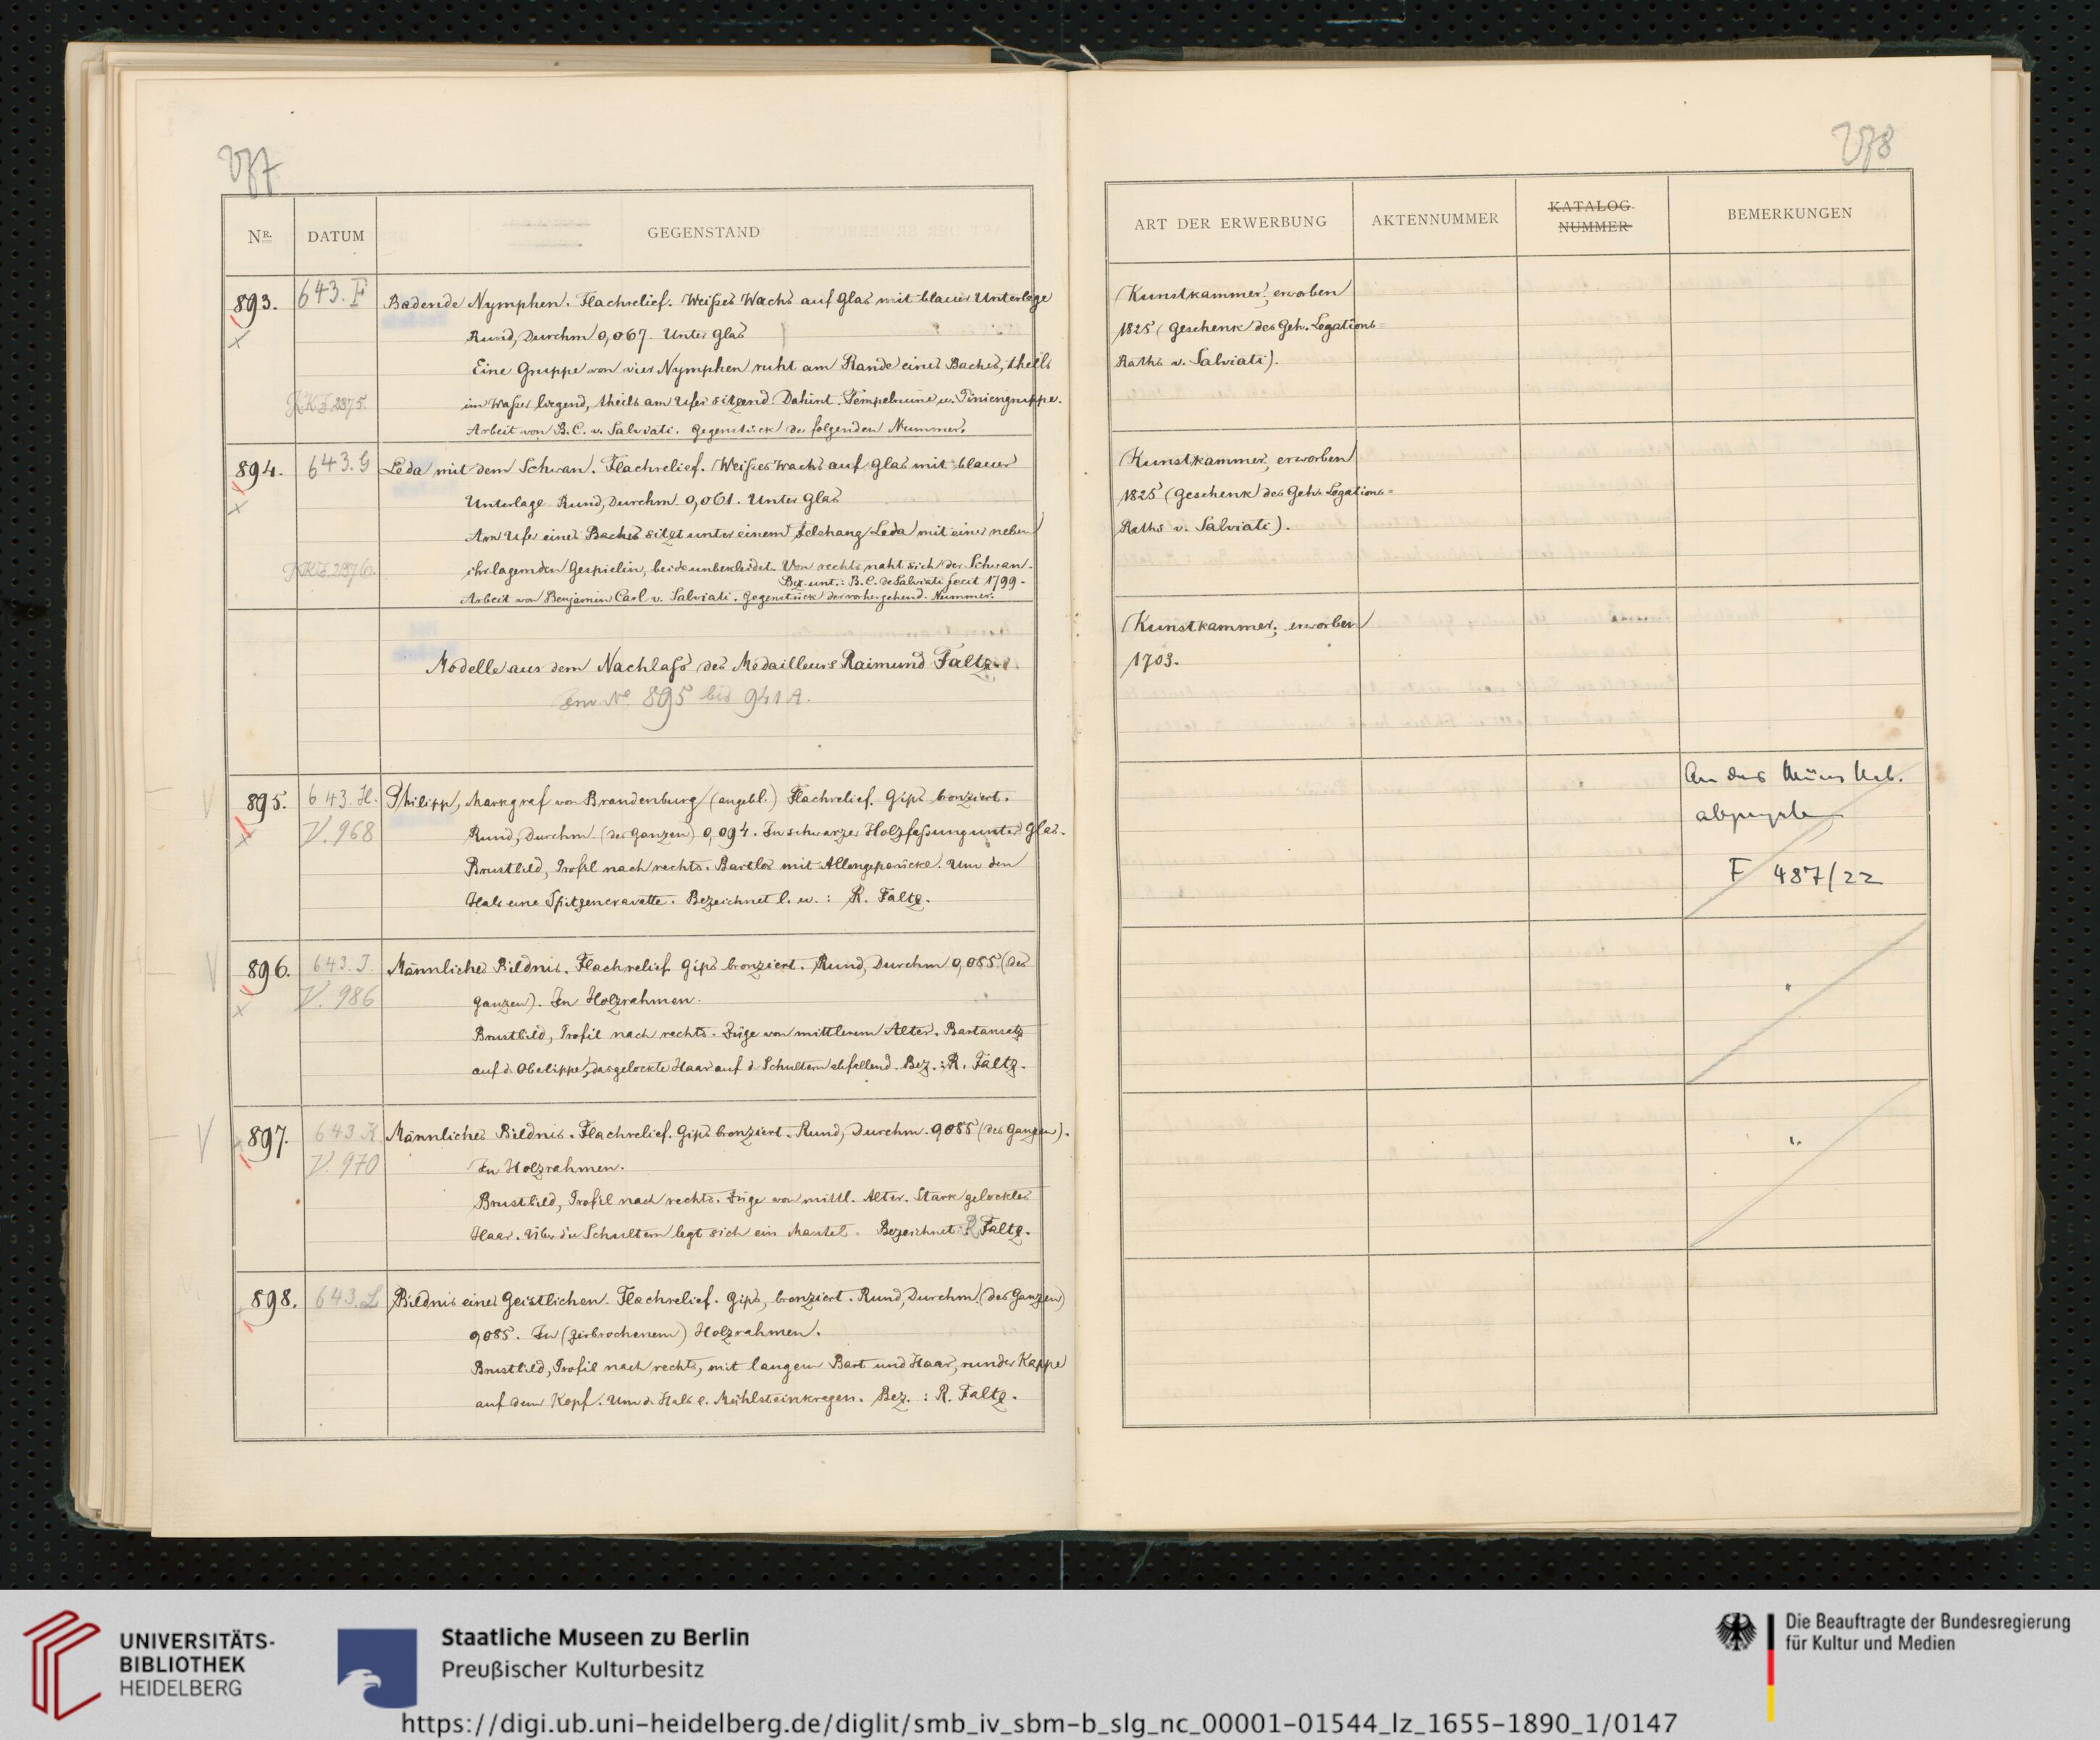 277
NR.
DATUM
GEGENSTAND
893.
643. F
Badende Nymphen. Flachrelief. Weißes Wachs auf Glas mit blauer Unterlage
Rund, Durchm 0,067. Unter Glas
Eine Gruppe von vier Nymphen ruht am Rande eines Baches, theils
KKS. 2375.
im Wasser liegend, theils am Ufer sitzend. Dahint. Tempelruine u. Piniengruppe.
Arbeit von B. C. v. Salviati. Gegenstück der folgenden Nummer.
894.
643. G
Leda mit dem Schwan. Flachrelief. Weißes Wachs auf Glas mit blauer
Unterlage Rund, Durchm. 0,061. Unter Glas
Am Ufer eines Baches sitzt unter einem Felshang Leda mit einer neben
2376.
ihr lagernden Gespielin, beide unbekleidet. Von rechts naht sich der Schwan.
Bez. unt.: B. C. de Salviati fecit 1799.
Arbeit von Benjamin Carl v. Salviati. Gegenstück der vorhergehend. Nummer.
Modelle aus dem Nachlaß des Medailleurs Raimund Faltz.
Inv. No 895 bis 941 A.
895.
643. H.
V. 968
Philipp, Markgraf von Brandenburg (angebl.) Flachrelief. Gips bronziert.
Rund, Durchm. (des Ganzen) 0,094. In schwarzer Holzfaßung unter Glas.
Brustbild, Profil nach rechts. Bartlos mit Allongeperücke. Um den
Hals eine Spitzencravatte. Bezeichnet l. u.: R. Faltz.
896.
643. J.
V. 986
Männliches Bildnis. Flachrelief Gips bronziert. Rund, Durchm 0,085. (des
Ganzen). In Holzrahmen.
Brustbild, Profil nach rechts. Züge von mittlerem Alter. Bartansatz
auf d. Oberlippe, das gelockte Haar auf d. Schultern abfallend. Bez.: R. Faltz.
897.
643 K
V. 970
Männliches Bildnis. Flachrelief. Gips bronziert. Rund, Durchm. 0,085 (des Ganzen).
In Holzrahmen.
Brustbild, Profil nach rechts. Züge von mittl. Alter. Stark gelocktes
Haar. Über die Schultern legt sich ein Mantel. Bezeichnet: R Faltz.
898.
643. L
Bildnis eines Geistlichen. Flachrelief. Gips, bronziert. Rund, Durchm. (des Ganzen)
0,085. In (zerbrochenem) Holzrahmen.
Brustbild, Profil nach rechts, mit langem Bart und Haar, runder Kappe
auf dem Kopf. Um d. Hals e. Mühlsteinkragen. Bez.: R. Faltz.
278
ART DER ERWERBUNG
AKTENNUMMER
KATALOG-
NUMMER
BEMERKUNGEN
Kunstkammer; erworben
1825 (Geschenk des Geh. Legations=
Raths v. Salviati).
Kunstkammer; erworben
1825 (Geschenk des Geh. Legations=
Raths v. Salviati).
Kunstkammer; erworben
1703.
An das Münz Kab.
F 487/22
"
"
UNIVERSITÄTS-
BIBLIOTHEK
HEIDELBERG
Staatliche Museen zu Berlin
Preußischer Kulturbesitz
Die Beauftragte der Bundesregierung
für Kultur und Medien
https://digi.ub.uni-heidelberg.de/diglit/smb_iv_sbm-b_slg_nc_00001-01544_lz_1655-1890_1/0147